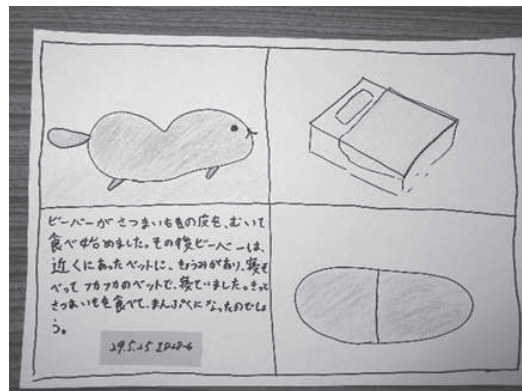 ビーバーがさつまいもの皮を、むいて
食べ始めました。その後ビーバーは、
近くにあったベットに、きょうみがあり、寝そ
べってフカフカのベットで、寝ていました。きっと
さつまいもを食べて、まんぷくになったのでしょ
う。
29.5.25